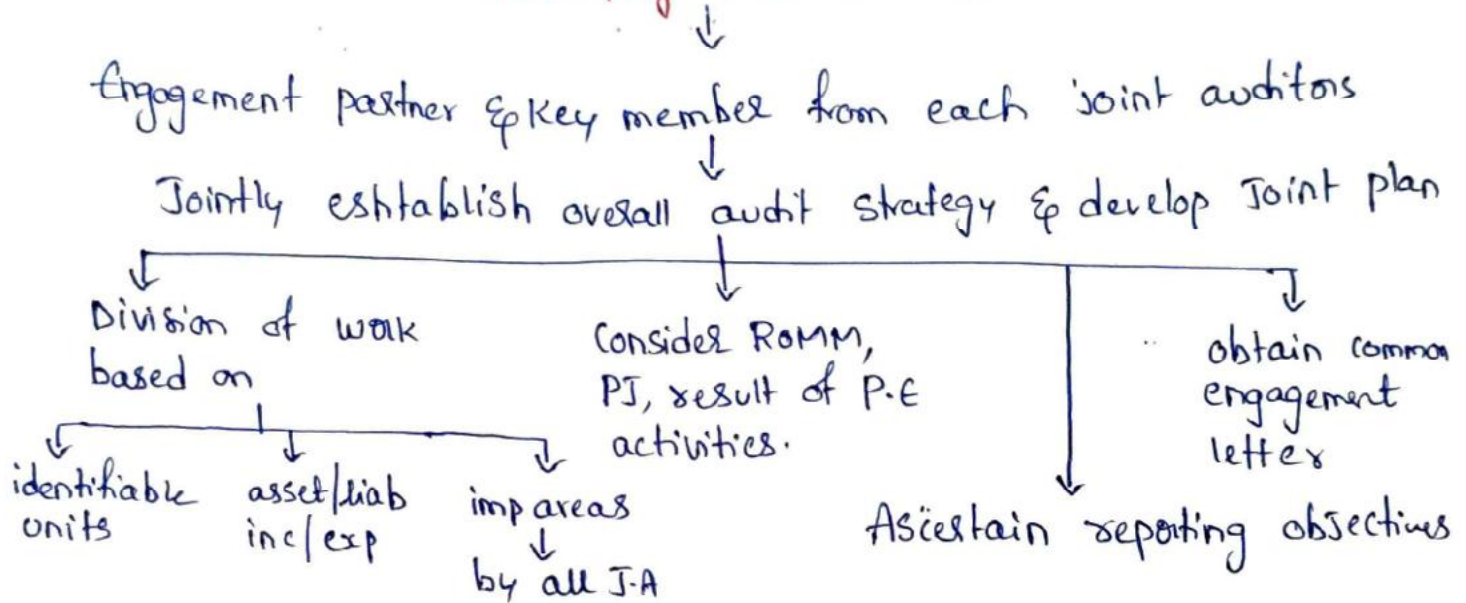 Engagement partner & key member from each joint auditors
Jointly eshtablish overall audit strategy & develop Joint plan
Division of work
based on
identifiable
units
asset/liab
inc/exp
imp areas
by all J.A
Consider ROMM,
PJ, result of P.E
activities.
Ascertain reporting objectives
obtain common
engagement
letter